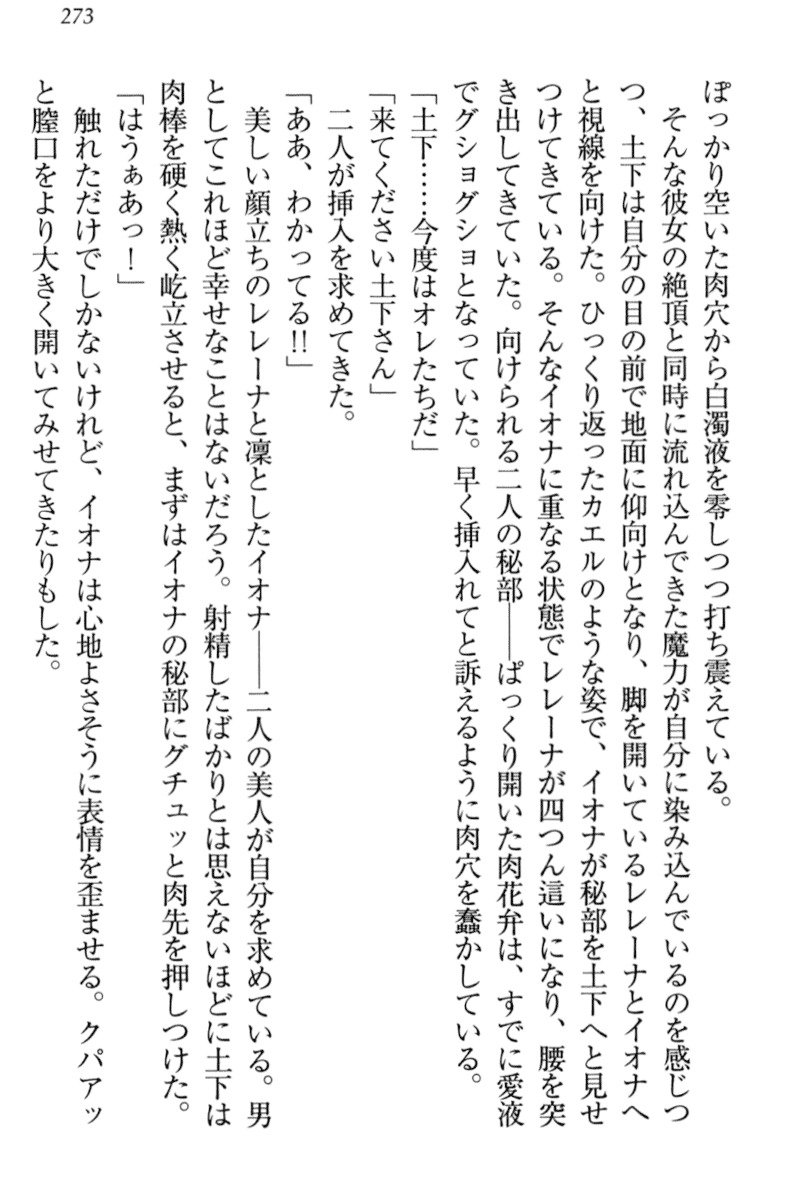 273
ぽっかり空いた肉穴から白濁液を零しつつ打ち震えている。
　そんな彼女の絶頂と同時に流れ込んできた魔力が自分に染み込んでいるのを感じつ
つ、土下は自分の目の前で地面に仰向けとなり、脚を開いているレレーナとイオナへ
と視線を向けた。ひっくり返ったカエルのような姿で、イオナが秘部を土下へと見せ
つけてきている。そんなイオナに重なる状態でレレーナが四つん這いになり、腰を突
き出してきていた。向けられる二人の秘部――ぱっくり開いた肉花弁は、すでに愛液
でグショグショとなっていた。早く挿入れてと訴えるように肉穴を蠢かしている。
「土下……今度はオレたちだ」
「来てください土下さん」
　二人が挿入を求めてきた。
「ああ、わかってる!!」
　美しい顔立ちのレレーナと凜としたイオナ――二人の美人が自分を求めている。男
としてこれほど幸せなことはないだろう。射精したばかりとは思えないほどに土下は
肉棒を硬く熱く屹立させると、まずはイオナの秘部にグチュッと肉先を押しつけた。
「はうぁあっ！」
　触れただけでしかないけれど、イオナは心地よさそうに表情を歪ませる。クパアッ
と膣口をより大きく開いてみせてきたりもした。